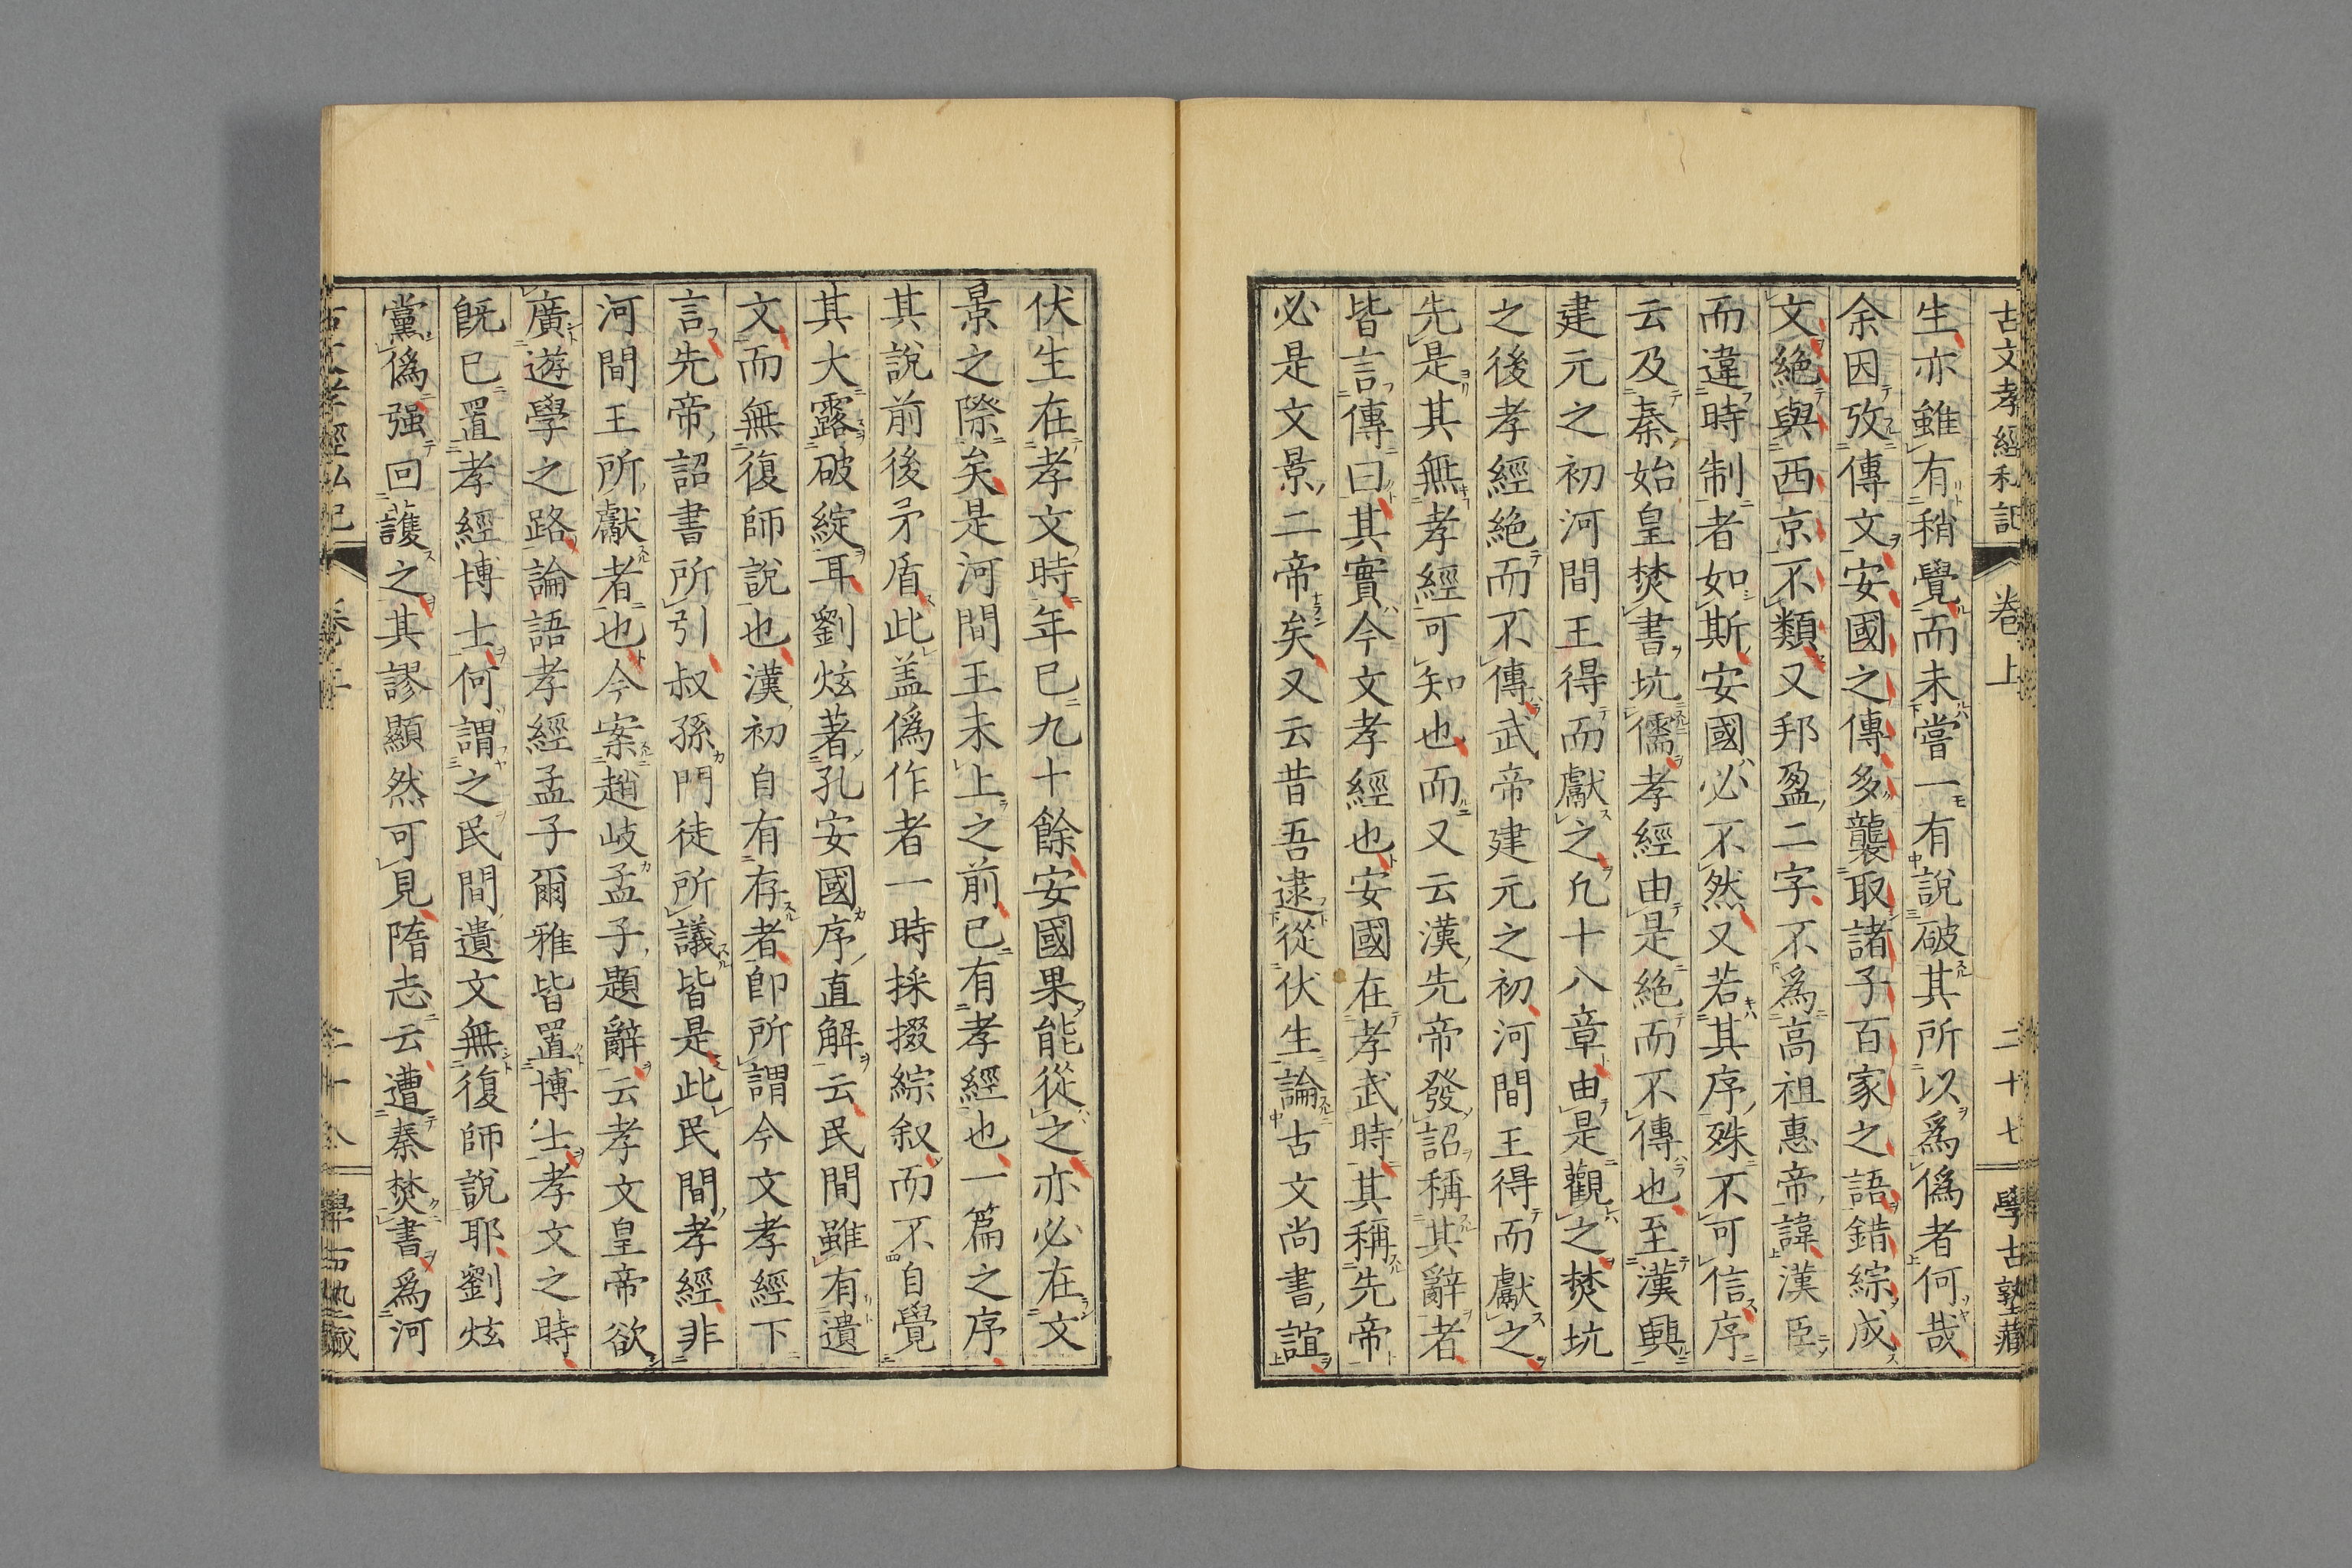 古文孝經私記 卷上 二十七 學古塾藏
生亦雖有稍覺而未嘗一有說破其所以爲僞者何哉
余因攷傳文安國之傳多襲取諸子百家之語錯綜成
文絕與西京不類又邦盈二字不爲高祖惠帝諱漢臣
而違時制者如斯安國必不然又若其序殊不可信序
云及秦始皇焚書坑儒孝經由是絕而不傳也至漢興
建元之初河間王得而獻之凢十八章由是觀之焚坑
之後孝經絕而不傳武帝建元之初河間王得而獻之
先是其無孝經可知也而又云漢先帝發詔稱其辭者
皆言傳曰其實今文孝經也安國在孝武時其稱先帝
必是文景二帝矣又云昔吾逮從伏生論古文尚書誼
伏生在孝文時年已九十餘安國果能從之亦必在文
景之際矣是河間王未上之前已有孝經也一篇之序
其說前後矛盾此盖僞作者一時採掇綜叙而不自覺
其大露破綻耳劉炫著孔安國序直解云民間雖有遺
文而無復師說也漢初自有存者卽所謂今文孝經下
言先帝詔書所引叔孫門徒所議皆是此民間孝經非
河間王所獻者也今案趙岐孟子題辭云孝文皇帝欲
廣遊學之路論語孝經孟子爾雅皆置博士孝文之時
旣已置孝經博士何謂之民間遺文無復師說耶劉炫
黨僞强回護之其謬顯然可見隋志云遭秦焚書爲河